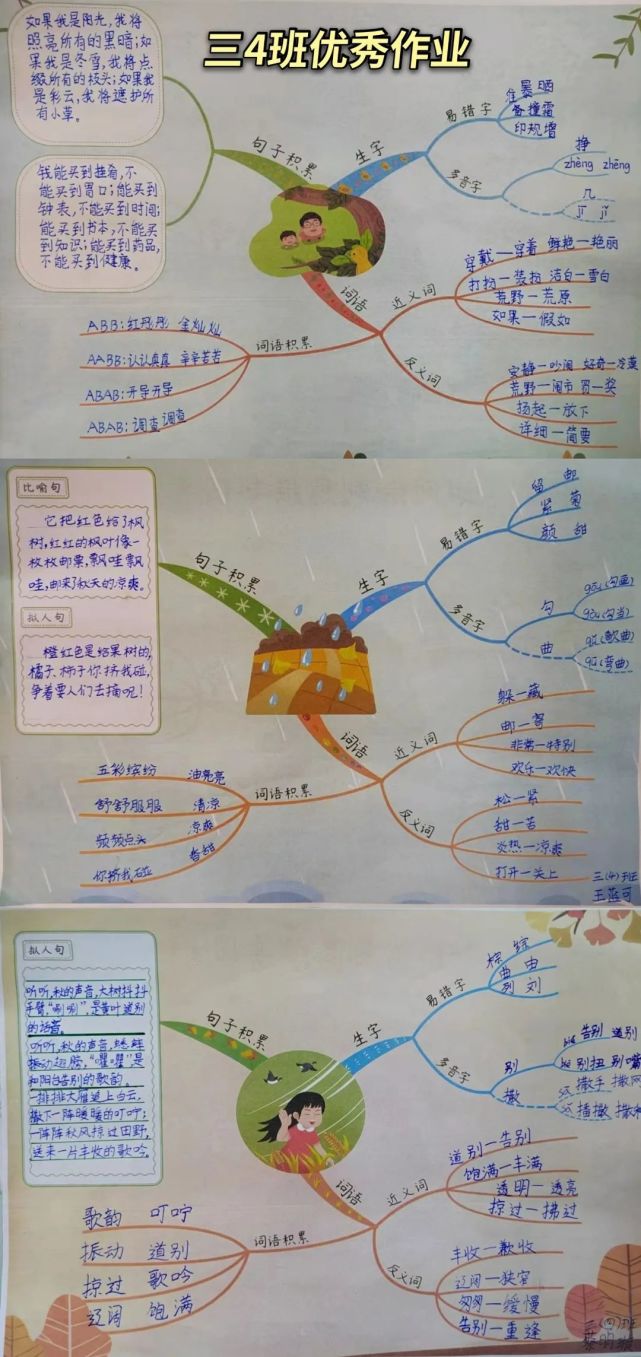 三4班优秀作业
如果我是阳光，我将
照亮所有的黑暗；如
果我是冬雪，我将点
缀所有的枝头；如果我
是彩云，我将遮护所
有小草。
钱能买到佳肴，不
能买到胃口；能买到
钟表，不能买到时间；
能买到书本，不能买
到知识；能买到药品，
不能买到健康。
句子积累
生字
易错字
暴 晒
备 撞 霜
印 规 增
多音字
挣
zhèng zhēng
几
jī jǐ
词语
近义词
穿戴—穿着 鲜艳—艳丽
打扮—装扮 洁白—雪白
荒野—荒原
如果—假如
反义词
安静—吵闹 好奇—冷漠
荒野—闹市 罚—奖
扬起—放下
详细—简要
词语积累
ABB：红彤彤 金灿灿
AABB：认认真真 辛辛苦苦
ABAB：开导开导
ABAB：调查调查
比喻句
它把红色给了枫
树，红红的枫叶像一
枚枚邮票，飘哇飘
哇，邮来了秋天的凉爽。
拟人句
橙红色是给果树的，
橘子、柿子你挤我碰，
争着要人们去摘呢！
句子积累
生字
易错字
留 邮
紧 菊
颜 甜
多音字
勾
gōu（勾画）
gòu（勾当）
曲
qǔ（歌曲）
qū（弯曲）
词语
近义词
躲—藏
邮—寄
非常—特别
欢乐—欢快
反义词
松—紧
甜—苦
炎热—凉爽
打开—关上
词语积累
五彩缤纷 油亮亮
舒舒服服 清凉
频频点头 凉爽
你挤我碰 香甜
三（4）班
王蓝可
拟人句
听听，秋的声音，大树抖抖
手臂，“唰唰”，是黄叶道别
的话音。
听听，秋的声音，蟋蟀
振动翅膀，“㘗㘗”，是
和阳台告别的歌韵。
一排排大雁追上白云，
撒下一阵暖暖的叮咛；
一阵阵秋风掠过田野，
送来一片丰收的歌吟。
句子积累
生字
易错字
棕 综
曲 由
列 刘
多音字
别
bié 告别 道别
biè 别扭 别嘴
撒
撒手 撒网
播撒
词语
近义词
道别—告别
饱满—丰满
透明—透亮
掠过—拂过
反义词
丰收—歉收
辽阔—狭窄
匆匆—缓慢
告别—重逢
词语积累
歌韵 叮咛
振动 道别
掠过 歌吟
辽阔 饱满
三（四）班